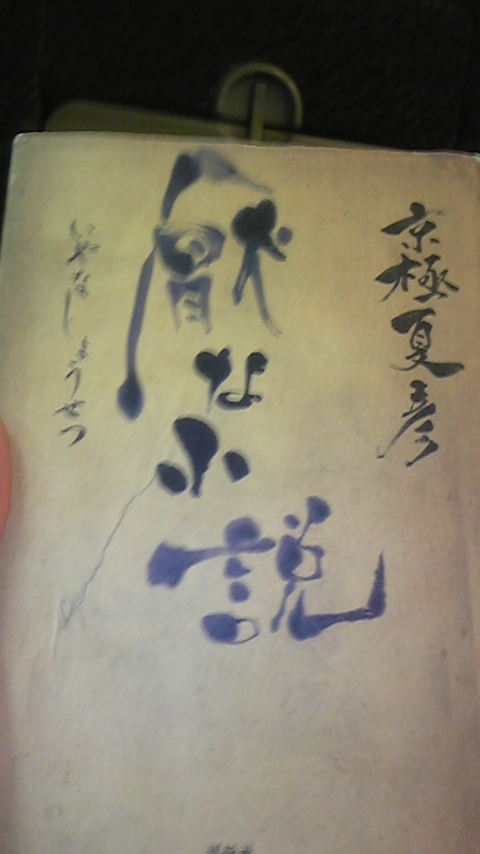 京極夏彦
厭な小説
いやなしょうせつ